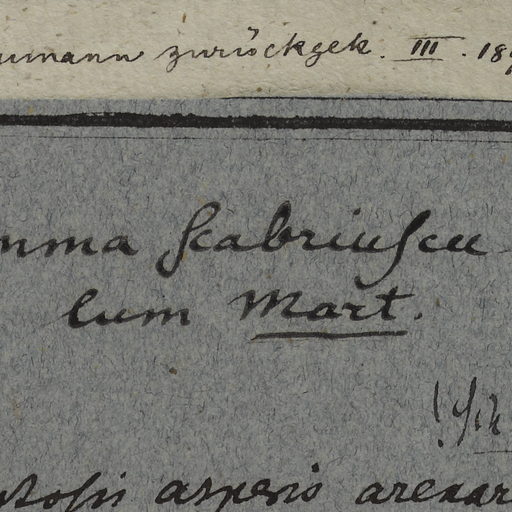 umann zurückgek. III. 18
mma scabriuscu
lum Mart.
asperis arenar